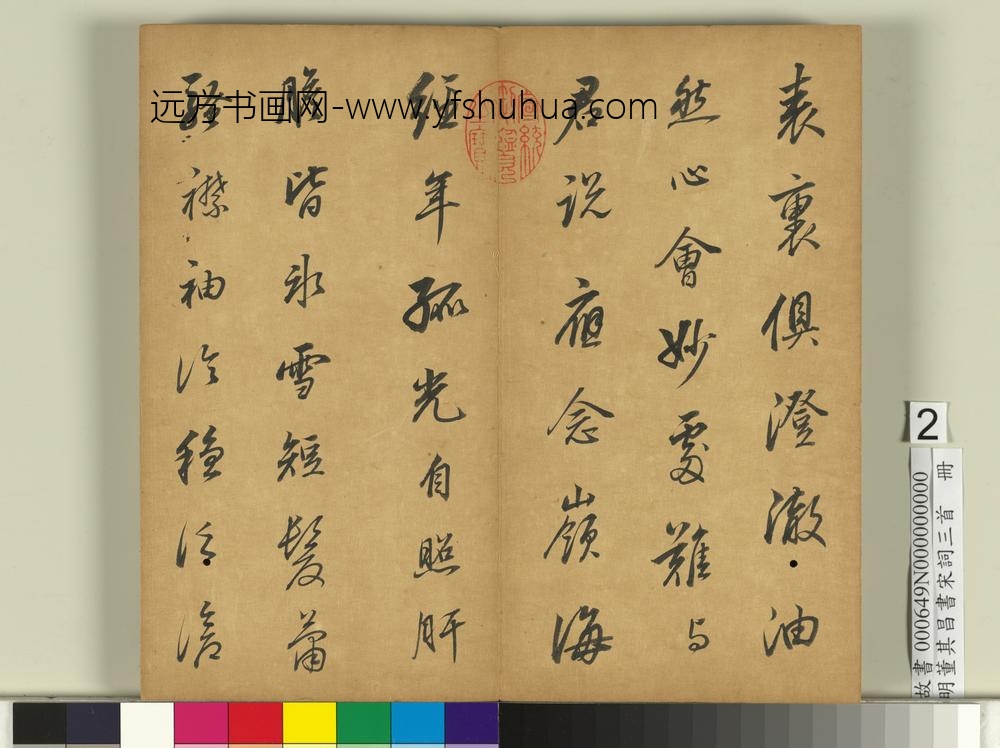 表裏俱澄澈油
然心會妙處難与
君说應念嶺海
經年孤光自照肝
膽皆氷雪短髮蕭
襟袖冷穩泛滄
远方书画网-www.yfshuhua.com
2
故書 000649N000000000
明董其昌書宋詞三首 冊